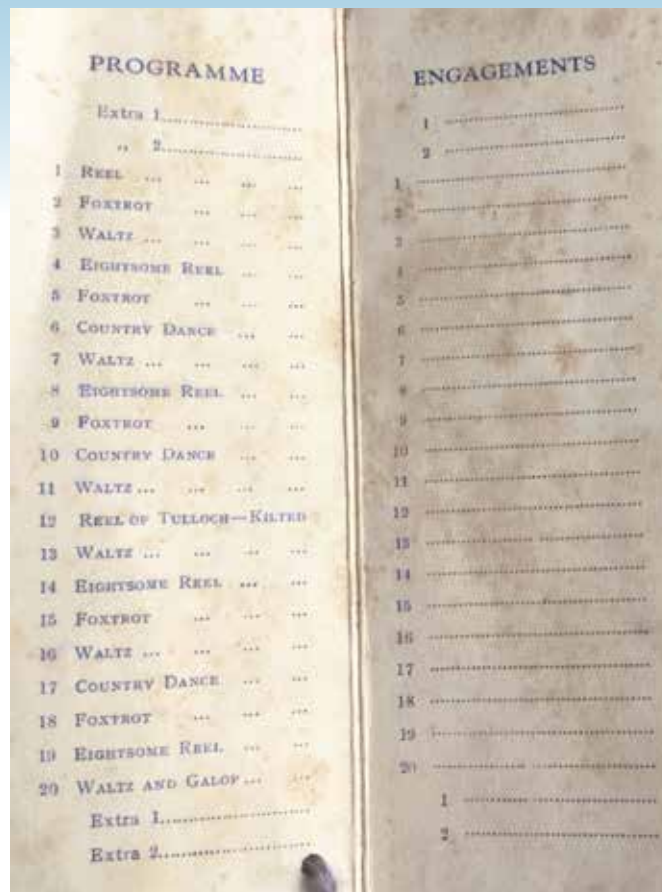 PROGRAMME
Extra 1..............................
„ 2..............................
1 REEL ... ... ... ...
2 FOXTROT ... ... ...
3 WALTZ ... ... ... ...
4 EIGHTSOME REEL ... ...
5 FOXTROT ... ... ...
6 COUNTRY DANCE ... ...
7 WALTZ ... ... ... ...
8 EIGHTSOME REEL ... ...
9 FOXTROT ... ... ...
10 COUNTRY DANCE ... ...
11 WALTZ ... ... ... ...
12 REEL OF TULLOCH—KILTED
13 WALTZ ... ... ... ...
14 EIGHTSOME REEL ... ...
15 FOXTROT ... ... ...
16 WALTZ ... ... ... ...
17 COUNTRY DANCE ... ...
18 FOXTROT ... ... ...
19 EIGHTSOME REEL ... ...
20 WALTZ AND GALOP ... ...
Extra 1..............................
Extra 2..............................
ENGAGEMENTS
1 ..............................
2 ..............................
1 ..............................
2 ..............................
3 ..............................
4 ..............................
5 ..............................
6 ..............................
7 ..............................
8 ..............................
9 ..............................
10 ..............................
11 ..............................
12 ..............................
13 ..............................
14 ..............................
15 ..............................
16 ..............................
17 ..............................
18 ..............................
19 ..............................
20 ..............................
1 ..............................
2 ..............................